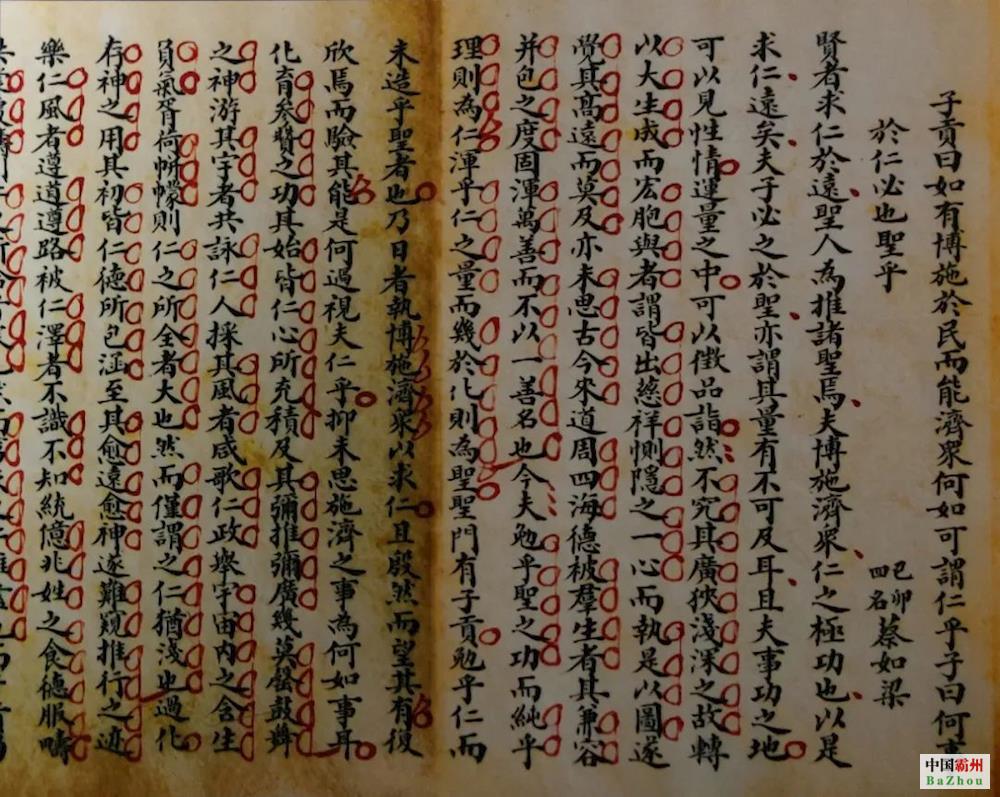 子貢曰如有博施於民而能濟眾何如可謂仁乎子曰何事
於仁必也聖乎
己卯
四名
蔡如梁
賢者求仁於遠聖人為推諸聖焉夫博施濟眾仁之極功也以是
求仁遠矣夫子必之於聖亦謂其量有不可及耳且夫事功之地
可以見性情運量之中可以徵品詣然不究其廣狹淺深之故轉
以大生成而宏胞與者謂皆出慈祥惻隱之一心而執是以圖遂
覺其高遠而莫及亦未思古今來道周四海德被羣生者其兼容
并包之度固渾萬善而不以一善名也今夫勉乎聖之功而純乎
理則為仁渾乎仁之量而幾於化則為聖聖門有子貢勉乎仁而
未造乎聖者也乃日者執博施濟眾以求仁且殷然而望其有復
欣焉而驗其能是何過視夫仁乎抑未思施濟之事為何如事耳
化育參贊之功其始皆仁心所充積及其彌推彌廣幾莫罄鼓舞
之神游其宇者共詠仁人採其風者咸歌仁政舉宇宙內之含生
負氣胥荷帡幪則仁之所全者大也然而僅謂之仁猶淺也過化
存神之用其初皆仁德所包涵至其愈遠愈神遂難窺推行之迹
樂仁風者遵遵遵路被仁澤者不識不知統億兆姓之食德服疇